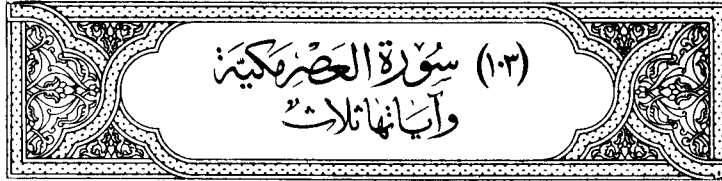 (١٠٣) سُورَة العَصْر مَكيَّة
وَآيَاتها ثلاث